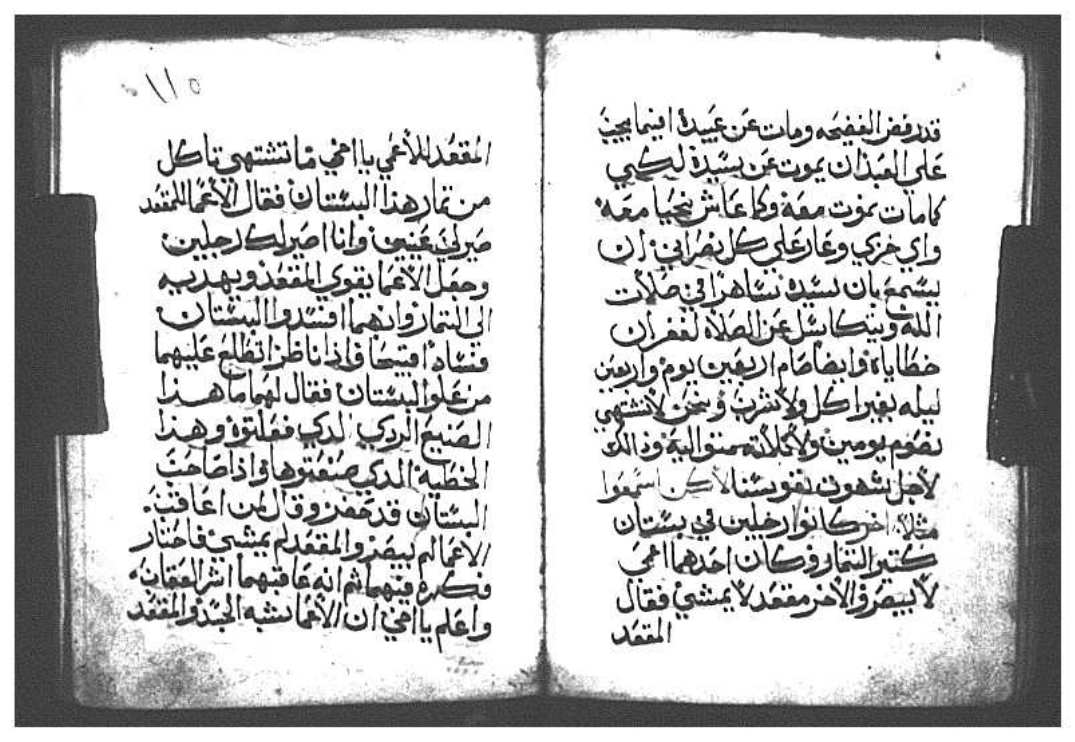 قدر فض الفضيحه ومات عن عبيدة افيما يجب
على العبد ان يموت عن سيدة لكيي
كما مات يموت معه وكما عاش يحيا معه
واي خزي وعار علي كل نصراني ان
يسمع بان سيدة ساهرا في صلات
الله ويتكاسل عن الصلاه لغفران
خطاياة وايضا صام اربعين يوم واربعين
ليله بغير اكل ولا شرب ونحن لا نشتهي
نصوم يومين ولا ثلاثه متواليه وذالك
لاجل شهوت نفوسنا لاكن اسمعوا
مثلا اخر كانوا رجلين في بستان
كتير التمار وكان احدهما اعمي
لا يبصر والاخر مقعد لا يمشي فقال
المقعد
١١٥
المقعد للاعمي يا اخي ما تشتهي تاكل
من تمار هذا البستان فقال الاعما للمقعد
صير لي عينين وانا اصير لك رجلين
وجعل الاعما يقوي المقعد ويهديه
الي التمار وانهما افسدوا البستان
فسادا قبيحا فاذا ناظرا تطلع عليهما
من علو البستان فقال لهما ما هذا
الصنيع الردي الدي فعلتوة وهذا
الخطيه الدي صنعتوها فاذا صاحب
البستان قد حضر وقال لمن اعاقب
الاعما لم يبصر والمقعد لم يمشي فاختار
فكره فيهما ثم انه عاقبهما اشر العقاب
واعلم يا اخي ان الاعما يشبه الجسد والمقعد